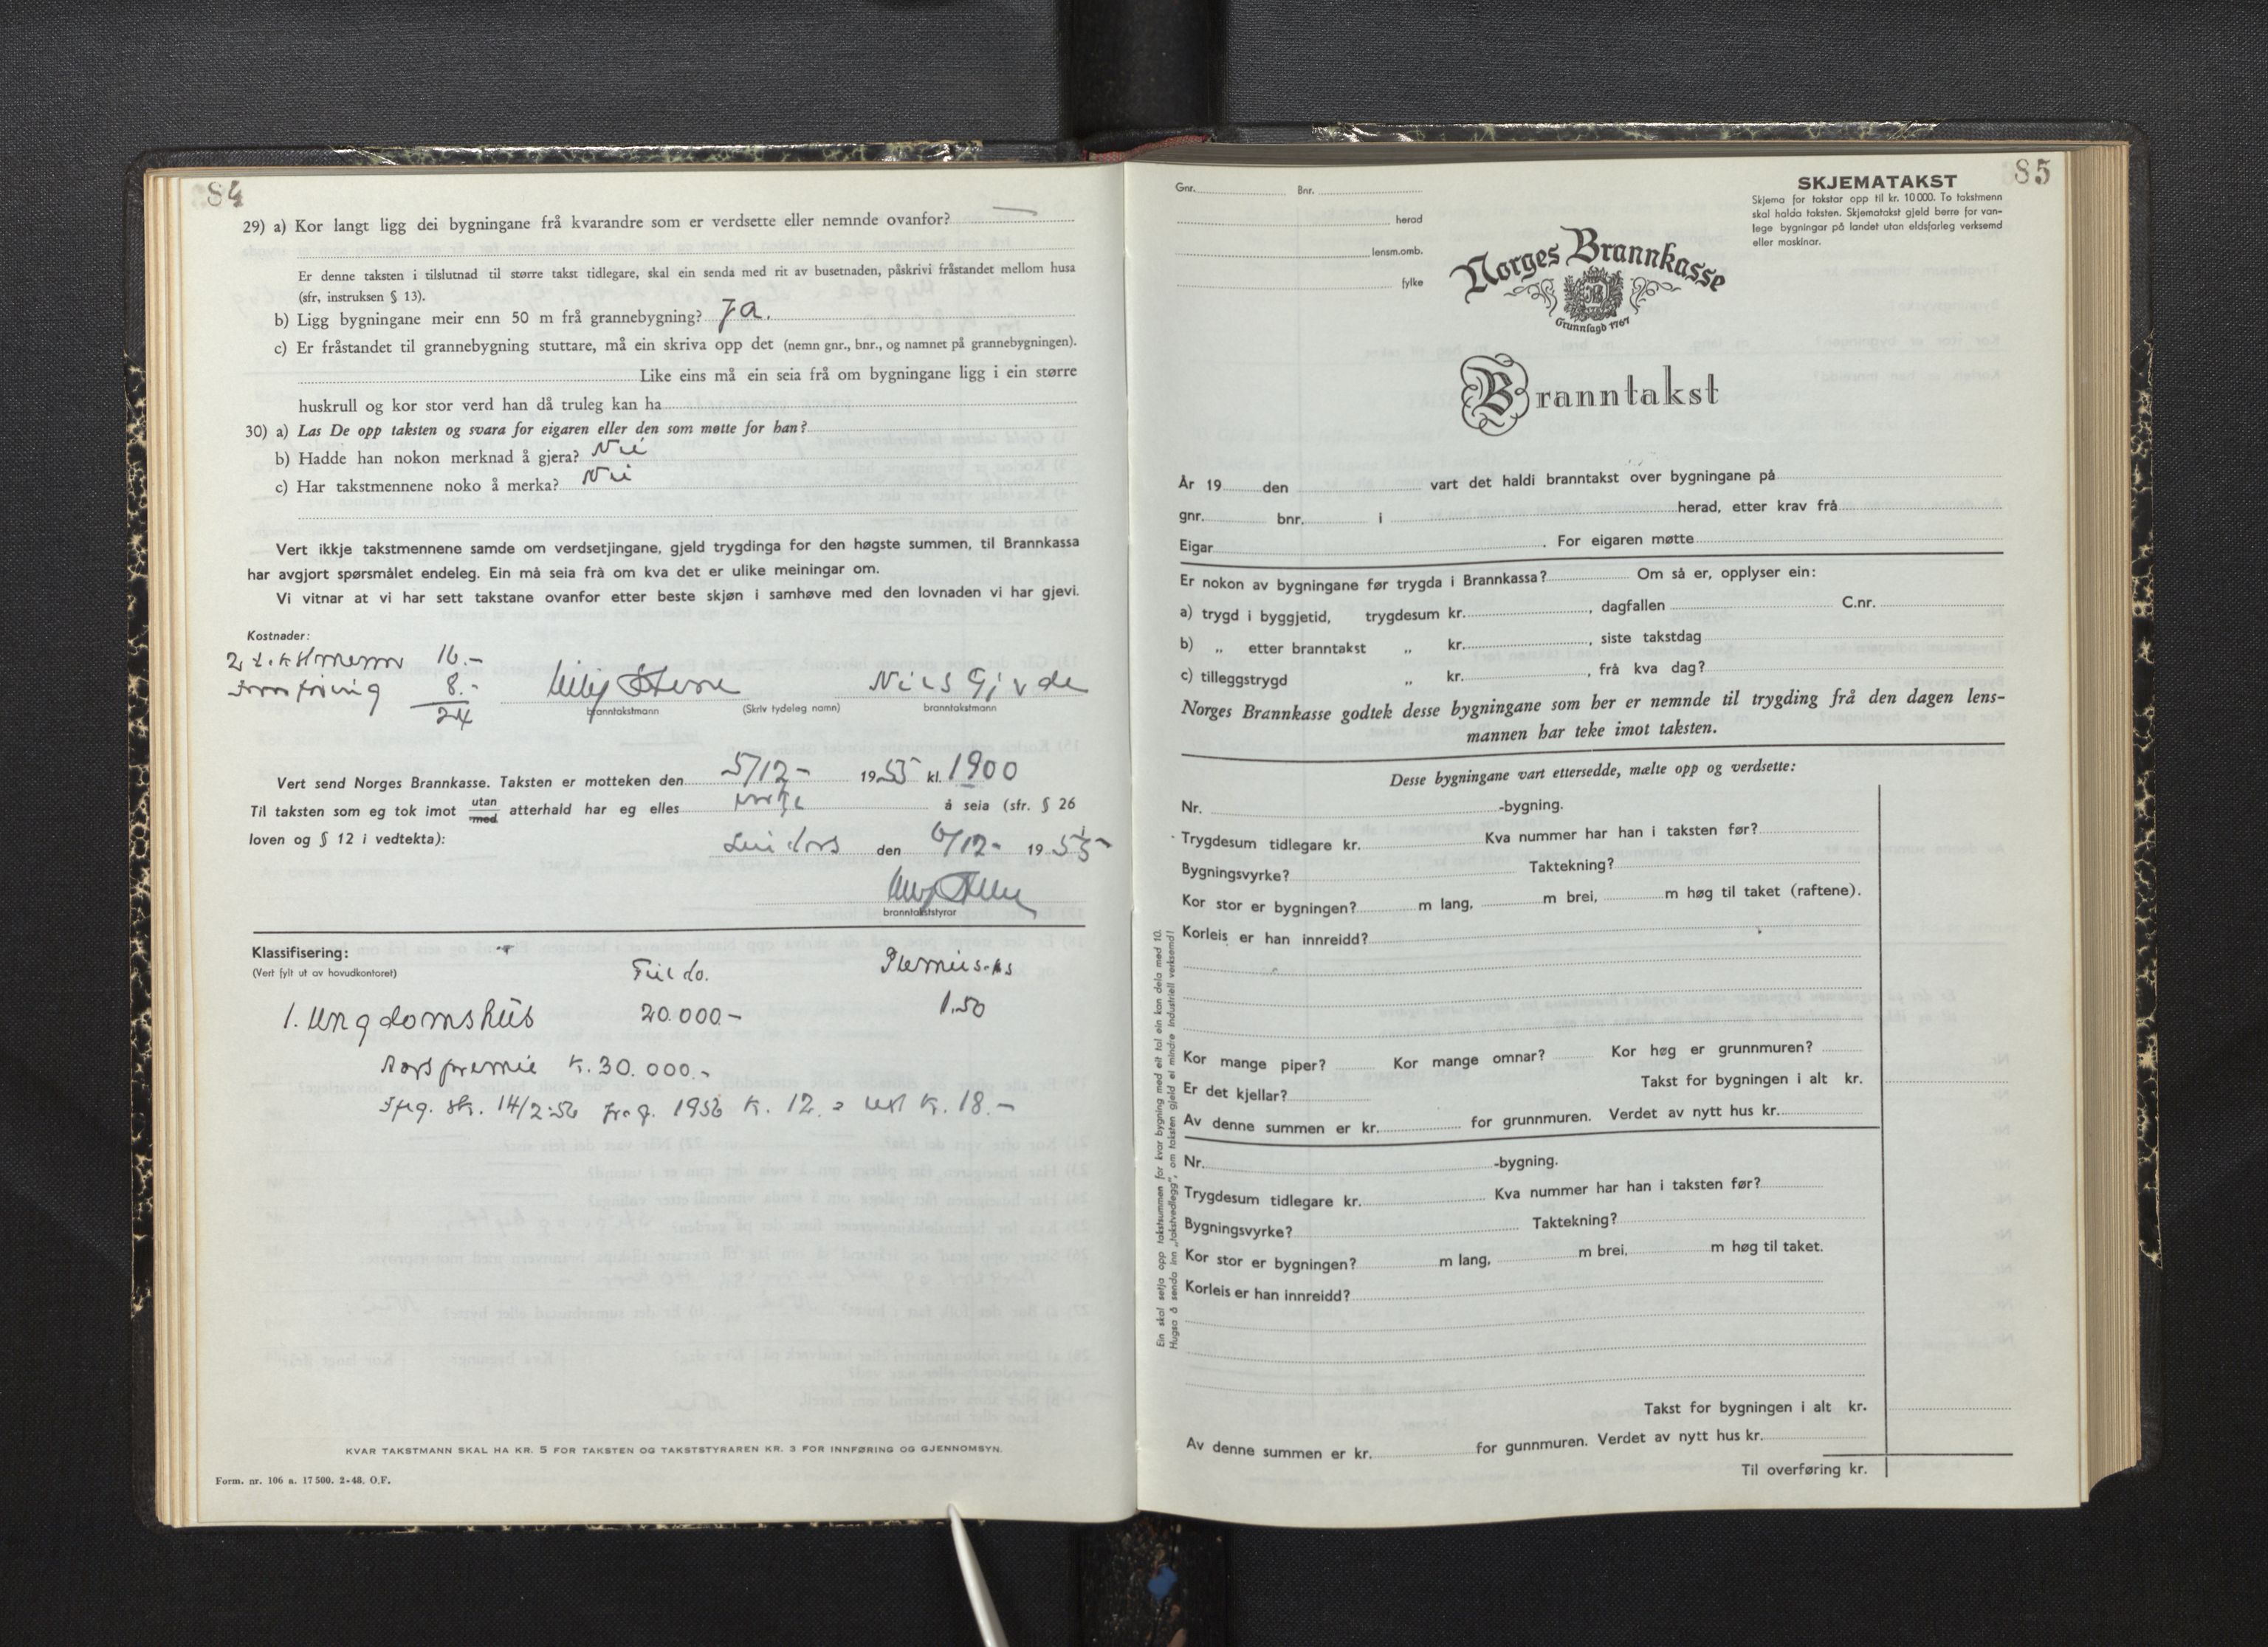 84
29) a) Kor langt ligg dei bygningane frå kvarandre som er verdsette eller nemnde ovanfor? —
Er denne taksten i tilslutnad til større takst tidlegare, skal ein senda med rit av busetnaden, påskrivi fråstandet mellom husa
(sfr, instruksen § 13).
b) Ligg bygningane meir enn 50 m frå grannebygning? Ja.
c) Er fråstandet til grannebygning stuttare, må ein skriva opp det (nemn gnr., bnr., og namnet på grannebygningen).
Like eins må ein seia frå om bygningane ligg i ein større
huskrull og kor stor verd han då truleg kan ha
30) a) Las De opp taksten og svara for eigaren eller den som møtte for han?
b) Hadde han nokon merknad å gjera? Nei
c) Har takstmennene noko å merka? Nei
Vert ikkje takstmennene samde om verdsetjingane, gjeld trygdinga for den høgste summen, til Brannkassa
har avgjort spørsmålet endeleg. Ein må seia frå om kva det er ulike meiningar om.
Vi vitnar at vi har sett takstane ovanfor etter beste skjøn i samhøve med den lovnaden vi har gjevi.
Kostnader:
2 takstmenn 16.-
8.-
24
Nils Gjerde
branntakstmann (Skriv tydeleg namn) branntakstmann
Vert send Norges Brannkasse. Taksten er motteken den 5/12- 1955 kl. 1900
Til taksten som eg tok imot utan/med atterhald har eg elles å seia (sfr. § 26
loven og § 12 i vedtekta):
Lindås den 6/12- 1955
branntakststyrar
Klassifisering:
(Vert fylt ut av hovudkontoret)
Premiesats
1. Ungdomshus 20.000.- 1.50
Aarspremie K. 30.000.-
14/2-56 1956 K. 12. K. 18.-
KVAR TAKSTMANN SKAL HA KR. 5 FOR TAKSTEN OG TAKSTSTYRAREN KR. 3 FOR INNFØRING OG GJENNOMSYN.
Form. nr. 106 a. 17 500. 2-48. O.F.
85
Gnr. Bnr.
herad
lensm.omb.
fylke
SKJEMATAKST
Skjema for takstar opp til kr. 10 000. To takstmenn
skal halda taksten. Skjematakst gjeld berre for van-
lege bygningar på landet utan eldsfarleg verksemd
eller maskinar.
Norges Brannkasse
Grunnlagd 1767
Branntakst
År 19 den vart det haldi branntakst over bygningane på
gnr. bnr. i herad, etter krav frå
Eigar. For eigaren møtte
Er nokon av bygningane før trygda i Brannkassa? Om så er, opplyser ein:
a) trygd i byggjetid, trygdesum kr. , dagfallen C.nr.
b) „ etter branntakst „ kr. , siste takstdag
c) tilleggstrygd „ kr. , frå kva dag?
Norges Brannkasse godtek desse bygningane som her er nemnde til trygding frå den dagen lens-
mannen har teke imot taksten.
Desse bygningane vart ettersedde, mælte opp og verdsette:
Nr. -bygning.
Trygdesum tidlegare kr. Kva nummer har han i taksten før?
Bygningsvyrke? Taktekning?
Kor stor er bygningen? m lang, m brei, m høg til taket (raftene).
Korleis er han innreidd?
Kor mange piper? Kor mange omnar? Kor høg er grunnmuren?
Er det kjellar? Takst for bygningen i alt kr.
Av denne summen er kr. for grunnmuren. Verdet av nytt hus kr.
Nr. -bygning.
Trygdesum tidlegare kr. Kva nummer har han i taksten før?
Bygningsvyrke? Taktekning?
Kor stor er bygningen? m lang, m brei, m høg til taket.
Korleis er han innreidd?
Takst for bygningen i alt kr.
Av denne summen er kr. for gunnmuren. Verdet av nytt hus kr.
Til overføring kr.
Ein skal setja opp takstsummen for kvar bygning med eit tal ein kan dela med 10.
Hugsa å senda inn „takstvedlegg", om taksten gjeld ei mindre industriell verksemd!